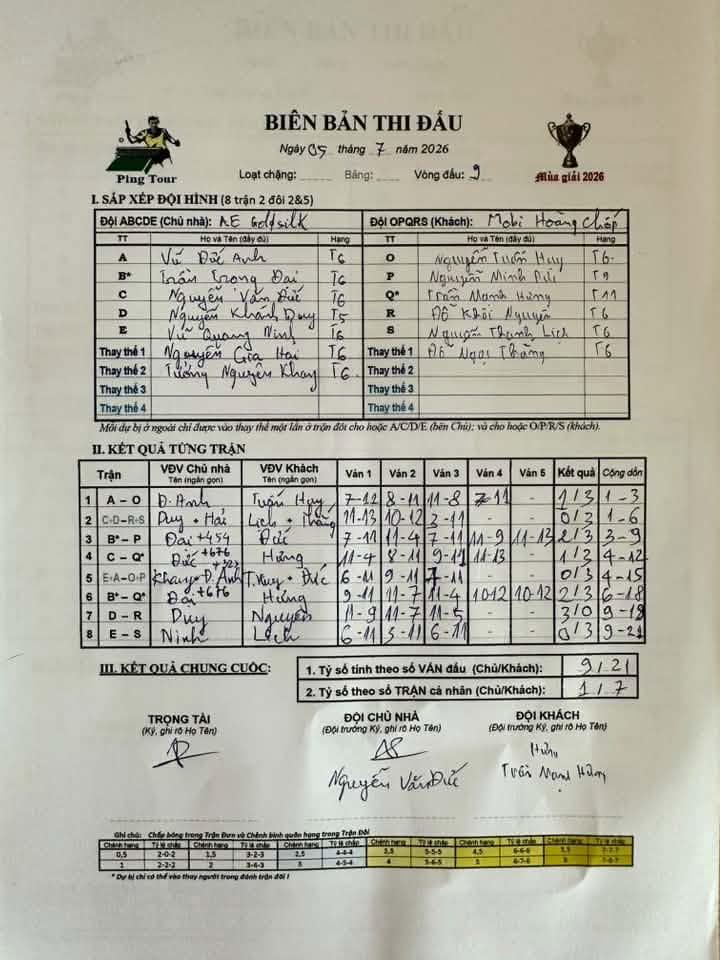 BIÊN BẢN THI ĐẤU
Ngày 05 tháng 7 năm 2026
Ping Tour
Loạt chặng: Bảng: Vòng đấu: 9
Mùa giải 2026
I. SẮP XẾP ĐỘI HÌNH (8 trận 2 đôi 2&5)
Đội ABCDE (Chủ nhà): AE Goldsilk Đội OPQRS (Khách): Mobi Hoàng Chấp
TT Họ và Tên (đầy đủ) Hạng TT Họ và Tên (đầy đủ) Hạng
A Vũ Đức Anh T6 O Nguyễn Tuấn Huy T6
B* Trần Trọng Đại T6 P Nguyễn Minh Đức T9
C Nguyễn Văn Đức T6 Q* Trần Mạnh Hưng T11
D Nguyễn Khánh Duy T5 R Đỗ Khôi Nguyên T6
E Vũ Quang Ninh T6 S Nguyễn Thanh Lịch T6
Thay thế 1 Nguyễn Gia Hải T6 Thay thế 1 Đỗ Ngọc Thắng T6
Thay thế 2 Tưởng Nguyên Khay T6 Thay thế 2
Thay thế 3 Thay thế 3
Thay thế 4 Thay thế 4
Mỗi dự bị ở ngoài chỉ được vào thay thế một lần ở trận đôi cho hoặc A/C/D/E (bên Chủ); và cho hoặc O/P/R/S (khách).
II. KẾT QUẢ TỪNG TRẬN
Trận VĐV Chủ nhà Tên (ngắn gọn) VĐV Khách Tên (ngắn gọn) Ván 1 Ván 2 Ván 3 Ván 4 Ván 5 Kết quả Cộng dồn
1 A – O Đ.Anh Tuấn Huy 7-11 8-11 11-8 7-11 - 1/3 1-3
2 C-D–R-S Duy + Hải Lịch + Thắng 11-13 10-12 3-11 - - 0/3 1-6
3 B*– P Đại +454 Đức 7-11 11-4 7-11 11-9 11-13 2/3 3-9
4 C – Q* Đức +676 Hưng 11-4 8-11 9-11 11-13 - 1/3 4-12
5 E-A–O-P Khay+Đ.Anh +323 T.Huy + Đức 6-11 9-11 7-11 - - 0/3 4-15
6 B*– Q* Đại +676 Hưng 9-11 11-7 11-4 10-12 10-12 2/3 6-18
7 D – R Duy Nguyên 11-9 11-7 11-5 - - 3/0 9-18
8 E – S Ninh Lịch 6-11 3-11 6-11 - - 0/3 9-21
III. KẾT QUẢ CHUNG CUỘC:
1. Tỷ số tính theo số VÁN đấu (Chủ/Khách): 9/21
2. Tỷ số theo số TRẬN cá nhân (Chủ/Khách): 1/7
TRỌNG TÀI ĐỘI CHỦ NHÀ ĐỘI KHÁCH
(Ký, ghi rõ Họ Tên) (Đội trưởng Ký, ghi rõ Họ Tên) (Đội trưởng Ký, ghi rõ Họ Tên)
Hưng
Nguyễn Văn Đức Trần Mạnh Hưng
Ghi chú: Chấp bóng trong Trận Đơn và Chênh bình quân hạng trong Trận Đôi
Chênh hạng Tỷ lệ chấp Chênh hạng Tỷ lệ chấp Chênh hạng Tỷ lệ chấp Chênh hạng Tỷ lệ chấp Chênh hạng Tỷ lệ chấp Chênh hạng Tỷ lệ chấp
0,5 2-0-2 1,5 3-2-3 2,5 4-4-4 3,5 5-5-5 4,5 6-6-6 5,5 7-7-7
1 2-2-2 2 3-6-3 3 4-5-4 4 5-6-5 5 6-7-6
* Dự bị chỉ có thể vào thay người trong đánh trận đôi !